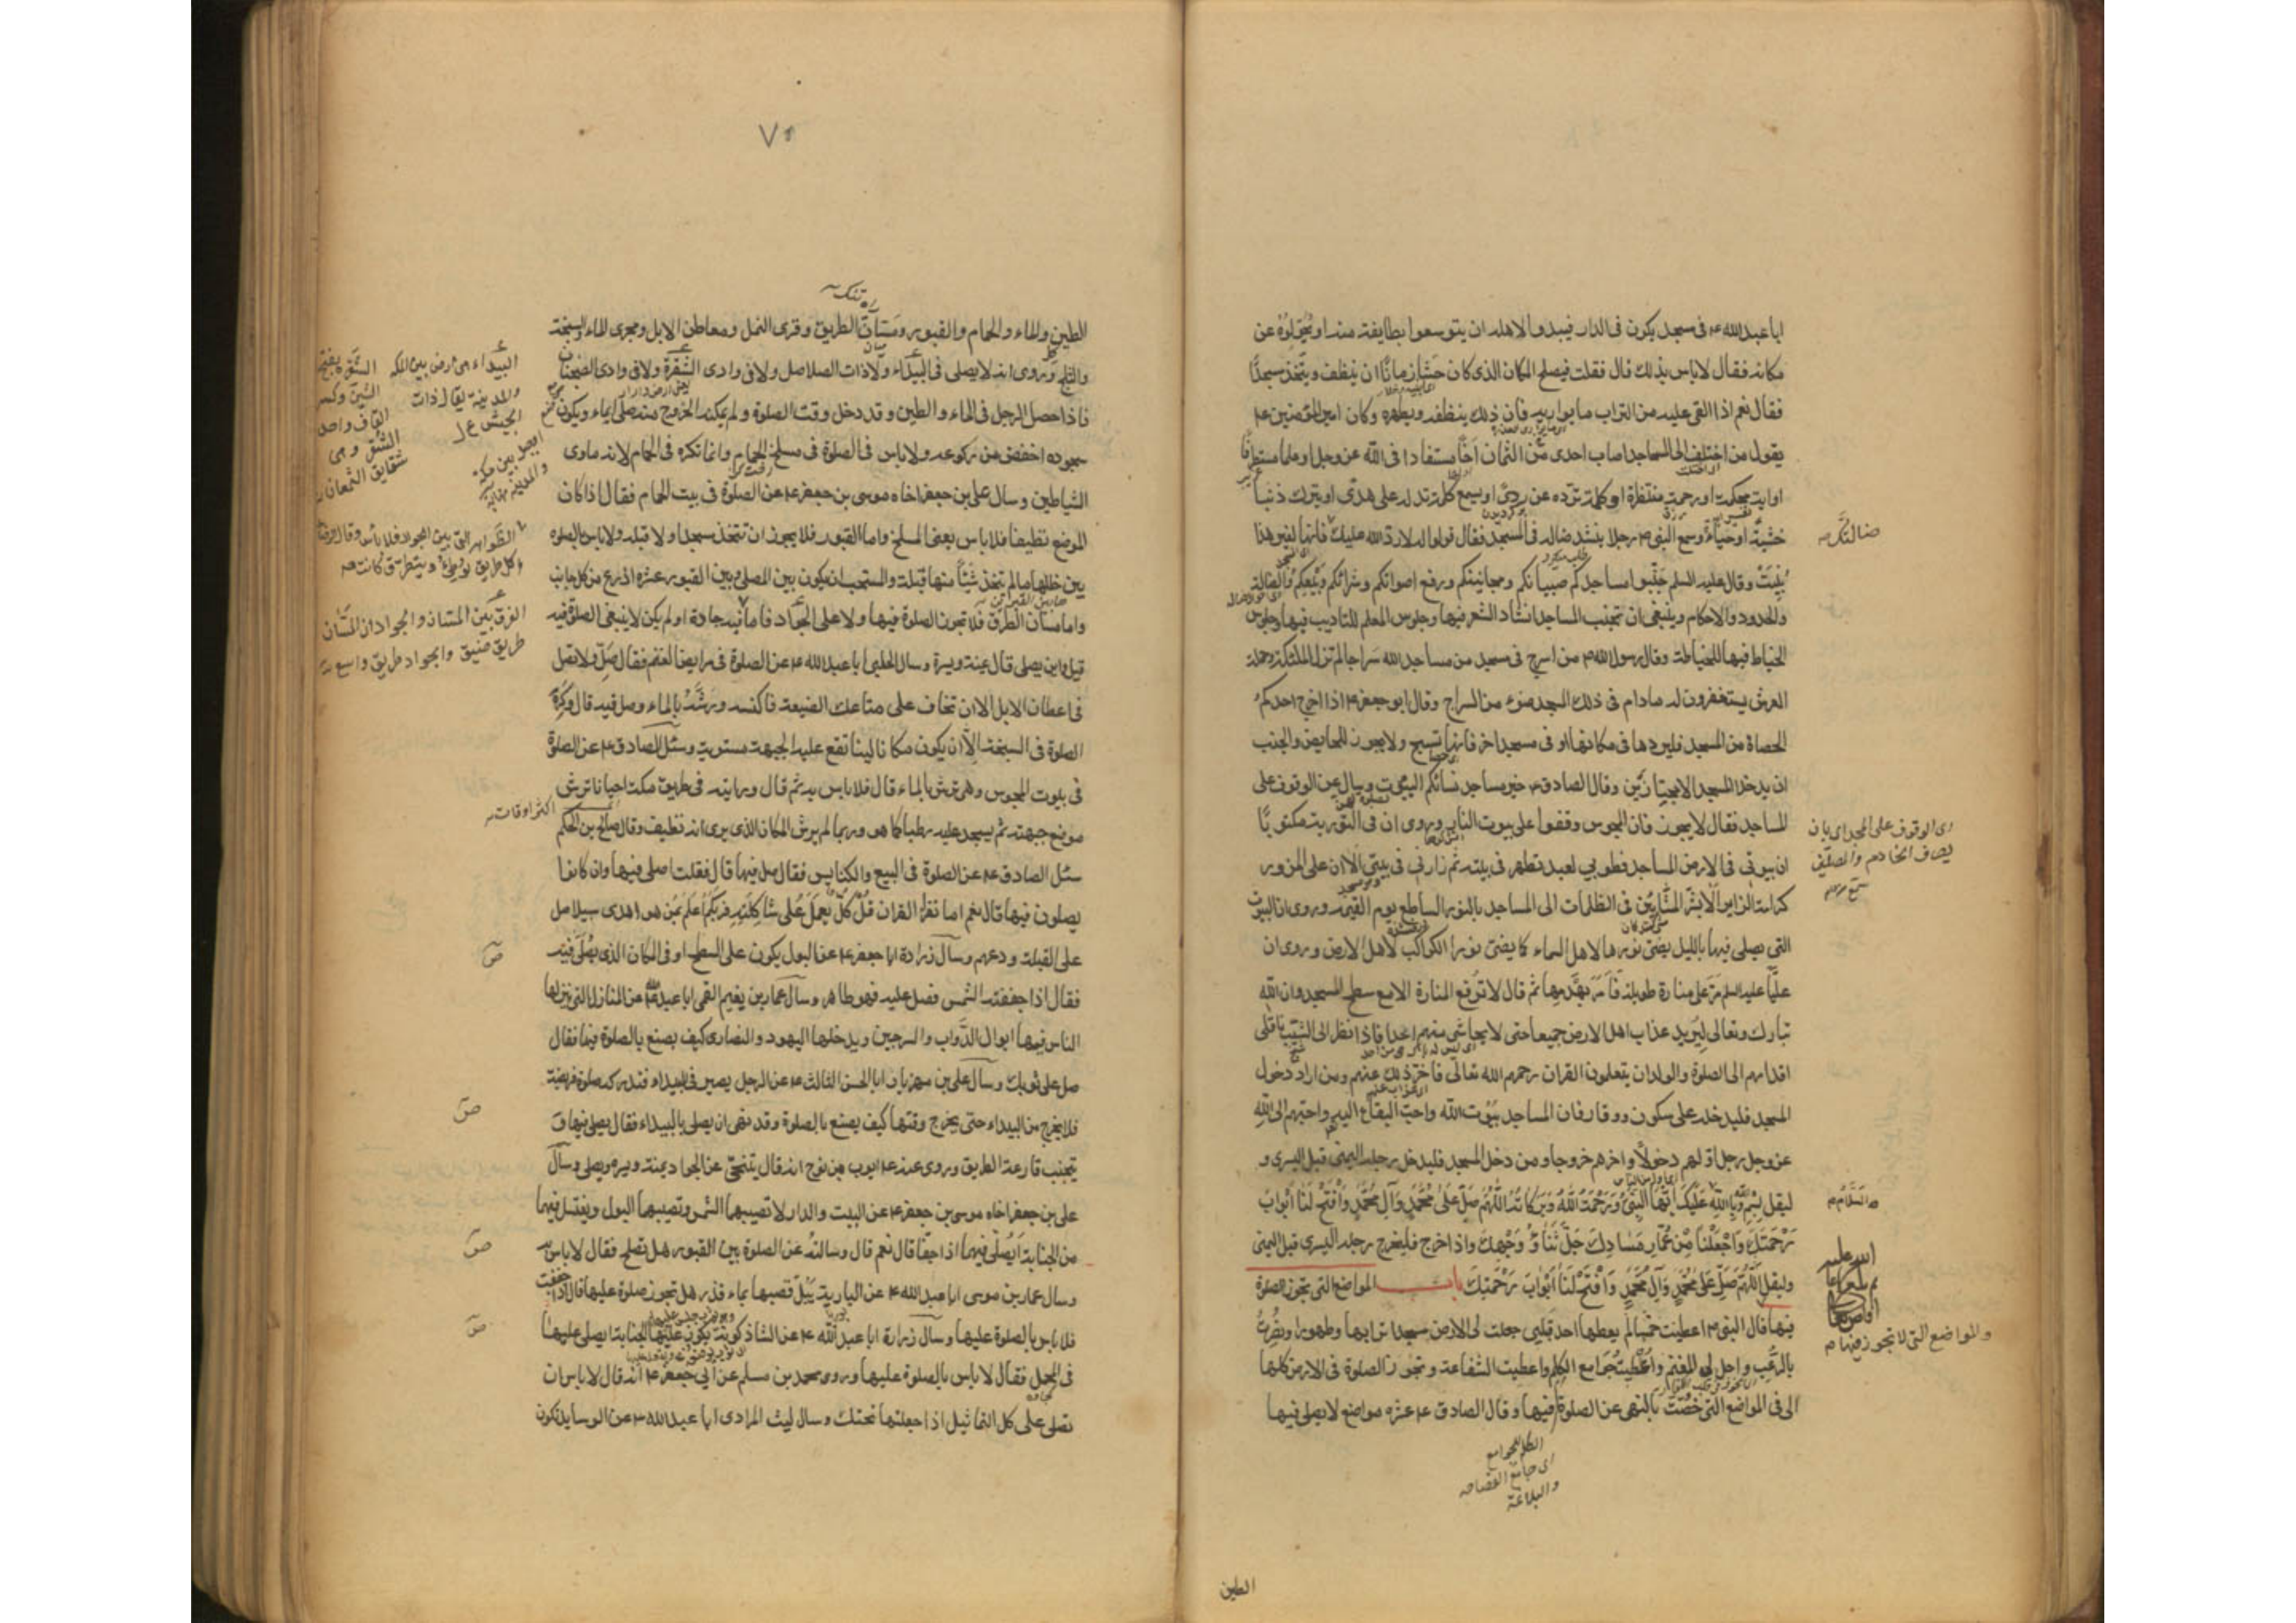 ابا عبدالله ع في مسجد يكون في الدار فيبدو لاهله ان يتوسعوا بطايفة منه او يحولوه عن
مكانه فقال لاباس بذلك قال فقلت فيصلح المكان الذى كان حشا زمانا ان ينظف ويتخذ مسجدا
فقال نعم اذا القى عليه من التراب ما يواريه فان ذلك ينظفه ويطهره وكان امير المؤمنين ع
يقول من اختلف الى المساجد اصاب احدى من الثمان اخا مستفادا فى الله عز وجل او علما مستطرفا
او اية محكمة او رحمة منتظرة او كلمة ترده عن ردى او يسمع كلمة تدله على هدى او يترك ذنبا
خشية او حياء وسمع النبى رجلا ينشد ضالة فى المسجد فقال قولوا له لا رد الله عليك فانها لغير هذا
ضالتك
بنيت وقال عليه السلم جنبوا مساجدكم صبيانكم ومجانينكم ورفع اصواتكم وشرائكم وبيعكم والضالة
والحدود والاحكام وينبغى ان تجنب المساجد انشاد الشعر فيها وجلوس المعلم للتاديب فيها وجلوس
الخياط فيها للخياطة وقال رسول الله من اسرج فى مسجد من مساجد الله سراجا لم تزل الملئكة وحملة
العرش يستغفرون له مادام فى ذلك المسجد ضوء من السراج وقال ابو جعفر ع اذا اخرج احدكم
الحصاة من المسجد فليردها فى مكانها او فى مسجد اخر فانها تسبح ولا يجوز للحايض والجنب
ان يدخلا المسجد الا مجتازين وقال الصادق ع خير مساجد نسائكم البيوت وسال عن الوقوف على
المساجد فقال لا يجوز فان المجوس وقفوا على بيوت النار وروى ان فى التورية مكتوبا
اى الوقوف على المجداى بان
ان بيوتى فى الارض المساجد فطوبى لعبد تطهر فى بيته ثم زارنى فى بيتى الا ان على المزور
كرامة الزاير الا بشر المشائين فى الظلمات الى المساجد بالنور الساطع يوم القيمة وروى ان البيوت
التى يصلى فيها بالليل يضئ نورها لاهل السماء كما يضئ نور الكواكب لاهل الارض وروى ان
عليا عليه السلم مر على منارة طويلة فامر بهدمها ثم قال لا ترفع المنارة الا مع سطح المسجد وان الله
تبارك وتعالى ليريد عذاب اهل الارض جميعا حتى لا يحاشى منهم احدا فاذا نظر الى الشيب ناقلى
اقدامهم الى الصلوة والولدان يتعلمون القران رحمهم الله تعالى فاخر ذلك عنهم ومن اراد دخول
المسجد فليدخله على سكون ووقار فان المساجد بيوت الله واحب البقاع اليه واحبهم الى الله
عز وجل رجل اولهم دخولا واخرهم خروجا ومن دخل المسجد فليدخل رجله اليمنى قبل اليسرى و
ليقل بسم الله وبالله عليك ايها النبى ورحمة الله وبركاته اللهم صل على محمد وآل محمد وافتح لنا ابواب
السلام
رحمتك واجعلنا من عمار مساجدك جل ثناؤ وجهك واذا خرج فليخرج رجله اليسرى قبل اليمنى
وليقل اللهم صل على محمد وآل محمد وافتح لنا ابواب رحمتك باب المواضع التى تجوز الصلوة
فيها قال النبى اعطيت خمسا لم يعطها احد قبلى جعلت لى الارض مسجدا ترابها وطهورا ونصرت
والمواضع التى لا تجوز فيها
بالرعب واحل لى المغنم واعطيت جوامع الكلم واعطيت الشفاعة وتجوز الصلوة فى الارض كلها
الى فى المواضع التى خصت بالنهى عن الصلوة فيها وقال الصادق ع عشره مواضع لا يصلى فيها
اى جامع الفصاحه
والبلاغة
الطين
٧٥
راه تنك
الطين والماء والحمام والقبور ومسان الطريق وقرى النمل ومعاطن الابل ومجرى الماء والسبخة
والثلج وروى انه لا يصلى فى البيداء ولا ذات الصلاصل ولا فى وادى الشقرة ولا فى وادى الضجنان
فاذا حصل الرجل فى الماء والطين وقد دخل وقت الصلوة ولم يمكنه الخروج منه صلى ايماء ويكون
سجوده اخفض من ركوعه ولاباس فى الصلوة فى مسلخ الحمام وانما تكره فى الحمام لانه ماوى
الشياطين وسال على بن جعفر اخاه موسى بن جعفر ع عن الصلوة فى بيت الحمام فقال اذا كان
الموضع نظيفا فلا باس يعنى المسلخ واما القبور فلا يجوز ان تتخذ مسجدا ولا قبلة ولا باس بالصلوة
بين خللها مالم تتخذ شيئا منها قبلة والمستحب ان يكون بين المصلى وبين القبور عشره اذرع من كل جانب
واما مسان الطرق فلا تجوز الصلوة فيها ولا على الجواد فاما فيه جادة او لم يكن لا ينبغى الصلوة فيه
قيل اين يصلى قال يمنة ويسرة وسال الحلبى ابا عبد الله ع عن الصلوة فى مرابض الغنم فقال صل ولا تصل
فى اعطان الابل الا ان تخاف على متاعك الضيعة فاكنسه ورشه بالماء وصل فيه قال وكره
الصلوة فى السبخة الا ان يكون مكانا لينا تقع عليه الجبهة مستوية وسئل الصادق ع عن الصلوة
فى بيوت المجوس وهى ترش بالماء قال فلا باس به ثم قال ورايته فى طريق مكة احيانا ترش
اكثر اوقات
موضع جبهته ثم يسجد عليه رطبا كما هو وربما لم يرش المكان الذى يرى انه نظيف وقال صالح بن الحكم
سئل الصادق ع عن الصلوة فى البيع والكنايس فقال صل فيها قال فقلت اصلى فيها وان كانوا
يصلون فيها قال نعم اما تقرا القران قل كل يعمل على شاكلته فربكم اعلم بمن هو اهدى سبيلا صل
على القبلة ودعهم وسال زرارة ابا جعفر ع عن البول يكون على السطح او فى المكان الذى يصلى فيه
فقال اذا جففته الشمس فصل عليه فهو طاهر وسال عمار بن يغيم القمى ابا عبد الله عن المنازل التى ينزلها
الناس فيها ابوال الدواب والسرجين ويدخلها اليهود والنصارى كيف يصنع بالصلوة فيها فقال
صل على ثوبك وسال على بن مهزيار ابا الحسن الثالث ع عن الرجل يصير فى البيداء فتدركه صلوة فريضة
فلا يخرج من البيداء حتى يخرج وقتها كيف يصنع بالصلوة وقد نهى ان يصلى بالبيداء فقال يصلى فيها و
يتجنب قارعة الطريق وروى عنه ع ايوب بن نوح انه قال يتنحى عن الجواد يمنة ويسرة ويصلى وسال
على بن جعفر اخاه موسى بن جعفر ع عن البيت والدار لا تصيبهما الشمس وتصيبهما البول ويغتسل فيهما
من الجنابة ايصلى فيهما اذا جفا قال نعم قال وسالته عن الصلوة بين القبور هل تصلح فقال لاباس
وسال عمار بن موسى ابا عبد الله ع عن البارية يبل قصبها بماء قذر هل تجوز صلوة عليها فقال اذا جففت
فلا باس بالصلوة عليها وسال زرارة ابا عبد الله ع عن الشاذكونة يكون عليها الجنابة ايصلى عليها
فى المحمل فقال لا باس بالصلوة عليها وروى محمد بن مسلم عن ابى جعفر ع انه قال لا باس ان
تصلى على كل التماثيل اذا جعلتها تحتك وسال ليث المرادى ابا عبد الله ع عن الوسايد تكون
البيداء هى ارض بين المكه
والمدينة يقال ذات
الجيش
الشقرة بفتح
الشين وكسر
القاف واحد
الشقر وهى
شقايق النعمان
الفرق بين المسان والجواد ان المسان
طريق ضيق والجواد طريق واسع